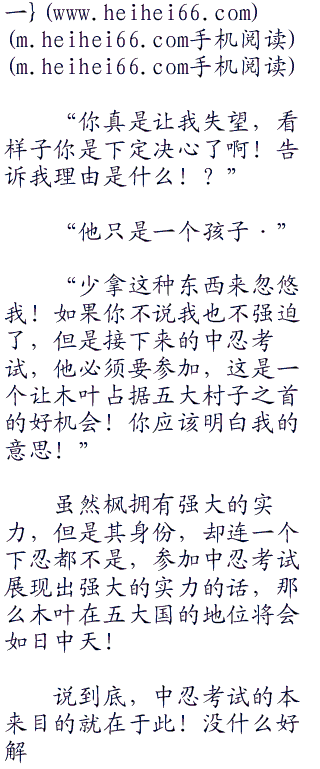 一} (www.heihei66.com)
(m.heihei66.com手机阅读)
(m.heihei66.com手机阅读)
“你真是让我失望，看
样子你是下定决心了啊！告
诉我理由是什么！？”
“他只是一个孩子·”
“少拿这种东西来忽悠
我！如果你不说我也不强迫
了，但是接下来的中忍考
试，他必须要参加，这是一
个让木叶占据五大村子之首
的好机会！你应该明白我的
意思！”
虽然枫拥有强大的实
力，但是其身份，却连一个
下忍都不是，参加中忍考试
展现出强大的实力的话，那
么木叶在五大国的地位将会
如日中天！
说到底，中忍考试的本
来目的就在于此！没什么好
解